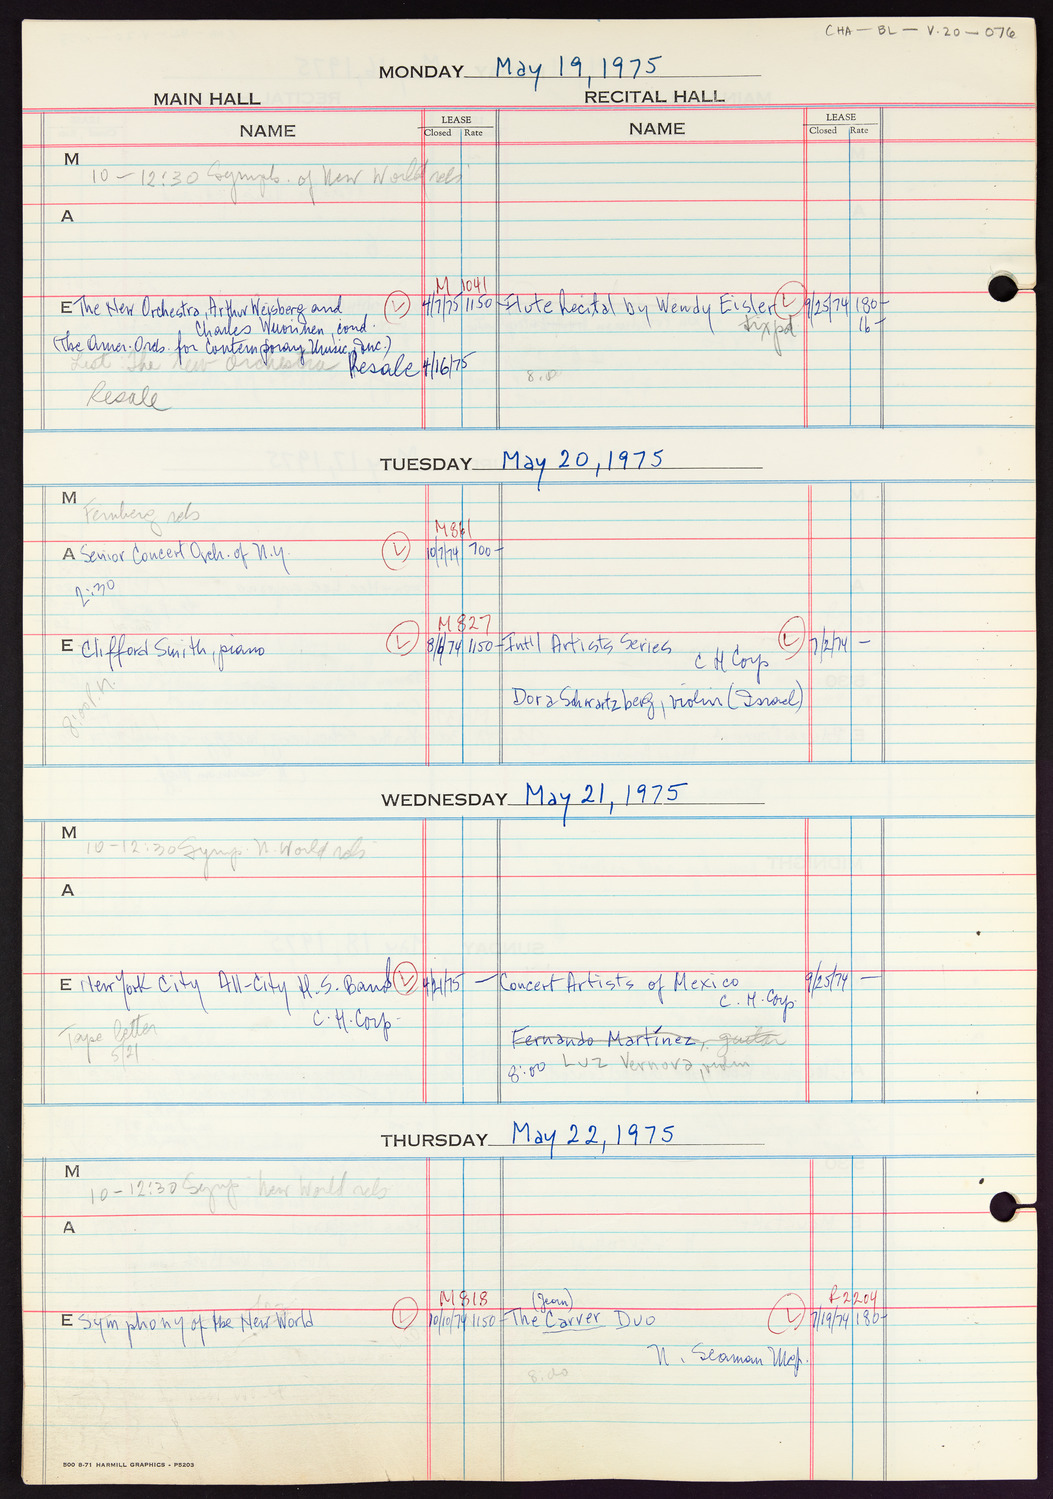 CHA - BL - V.20 - 076
MONDAY May 19, 1975
MAIN HALL RECITAL HALL
NAME LEASE Closed Rate NAME LEASE Closed Rate
M
10 - 12:30 Symph. of New World rehs
A
M 1041
E The New Orchestra, Arthur Weisberg and L 4/7/75 1150- Flute Recital by Wendy Eisler L 9/25/74 180-
Charles Wuorinen, cond. 16-
(The Amer. Orch. for Contemporary Music, Inc.)
List The New Orchestra Resale 4/16/75
8:00
Resale
TUESDAY May 20, 1975
M
rehs
M861
A Senior Concert Orch. of N.Y. L 10/7/74 700-
2:30
M827
E Clifford Smith, piano L 8/6/74 1150- Int'l Artists Series L 7/2/74 -
C H Corp
8:00 P.M.
Dora Schwartzberg, violin (Israel)
WEDNESDAY May 21, 1975
M
10-12:30 Symp. N. World rehs
A
E New York City All-City H.S. Band L 4/21/75 - Concert Artists of Mexico 9/25/74 -
C.H. Corp. C.H. Corp.
Tape letter
5/21
Fernando Martínez, guitar
8:00 Luz Vernova,
THURSDAY May 22, 1975
M
10-12:30 Symp. New World rehs
A
M818 (Jean) R2204
E Symphony of the New World L 10/10/74 1150- The Carver Duo L 7/19/74 180-
N. Seaman Mgt.
8:00
500 8-71 HARMILL GRAPHICS - P5203